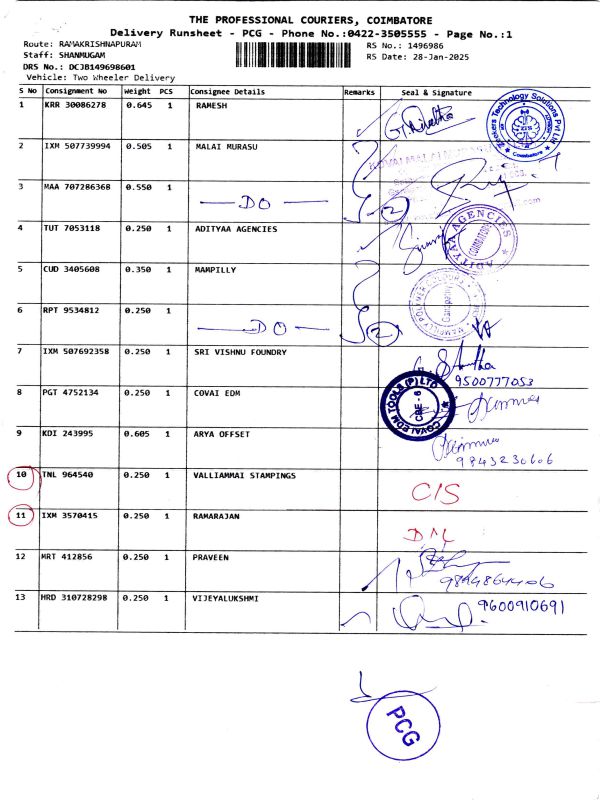 THE PROFESSIONAL COURIERS, COIMBATORE
Delivery Runsheet - PCG - Phone No.:0422-3505555 - Page No.:1
Route: RAMAKRISHNAPURAM RS No.: 1496986
Staff: SHANMUGAM RS Date: 28-Jan-2025
DRS No.: DCJB149698601
Vehicle: Two Wheeler Delivery
S No Consignment No Weight PCS Consignee Details Remarks Seal & Signature
1 KRR 30086278 0.645 1 RAMESH
2 IXM 507739994 0.505 1 MALAI MURASU
3 MAA 707286368 0.550 1 DO 2
4 TUT 7053118 0.250 1 ADITYAA AGENCIES
ADITYAA AGENCIES
5 CUD 3405608 0.350 1 MAMPILLY
6 RPT 9534812 0.250 1 DO 2
7 IXM 507692358 0.250 1 SRI VISHNU FOUNDRY
9500777053
8 PGT 4752134 0.250 1 COVAI EDM
COVAI EDM TOOLS (P) LTD
CBE - 6
9 KDI 243995 0.605 1 ARYA OFFSET
9843230606
10 TNL 964540 0.250 1 VALLIAMMAI STAMPINGS C/S
11 IXM 3570415 0.250 1 RAMARAJAN
12 MRT 412856 0.250 1 PRAVEEN
13 HRD 310728298 0.250 1 VIJEYALUKSHMI 9600910691
PCG